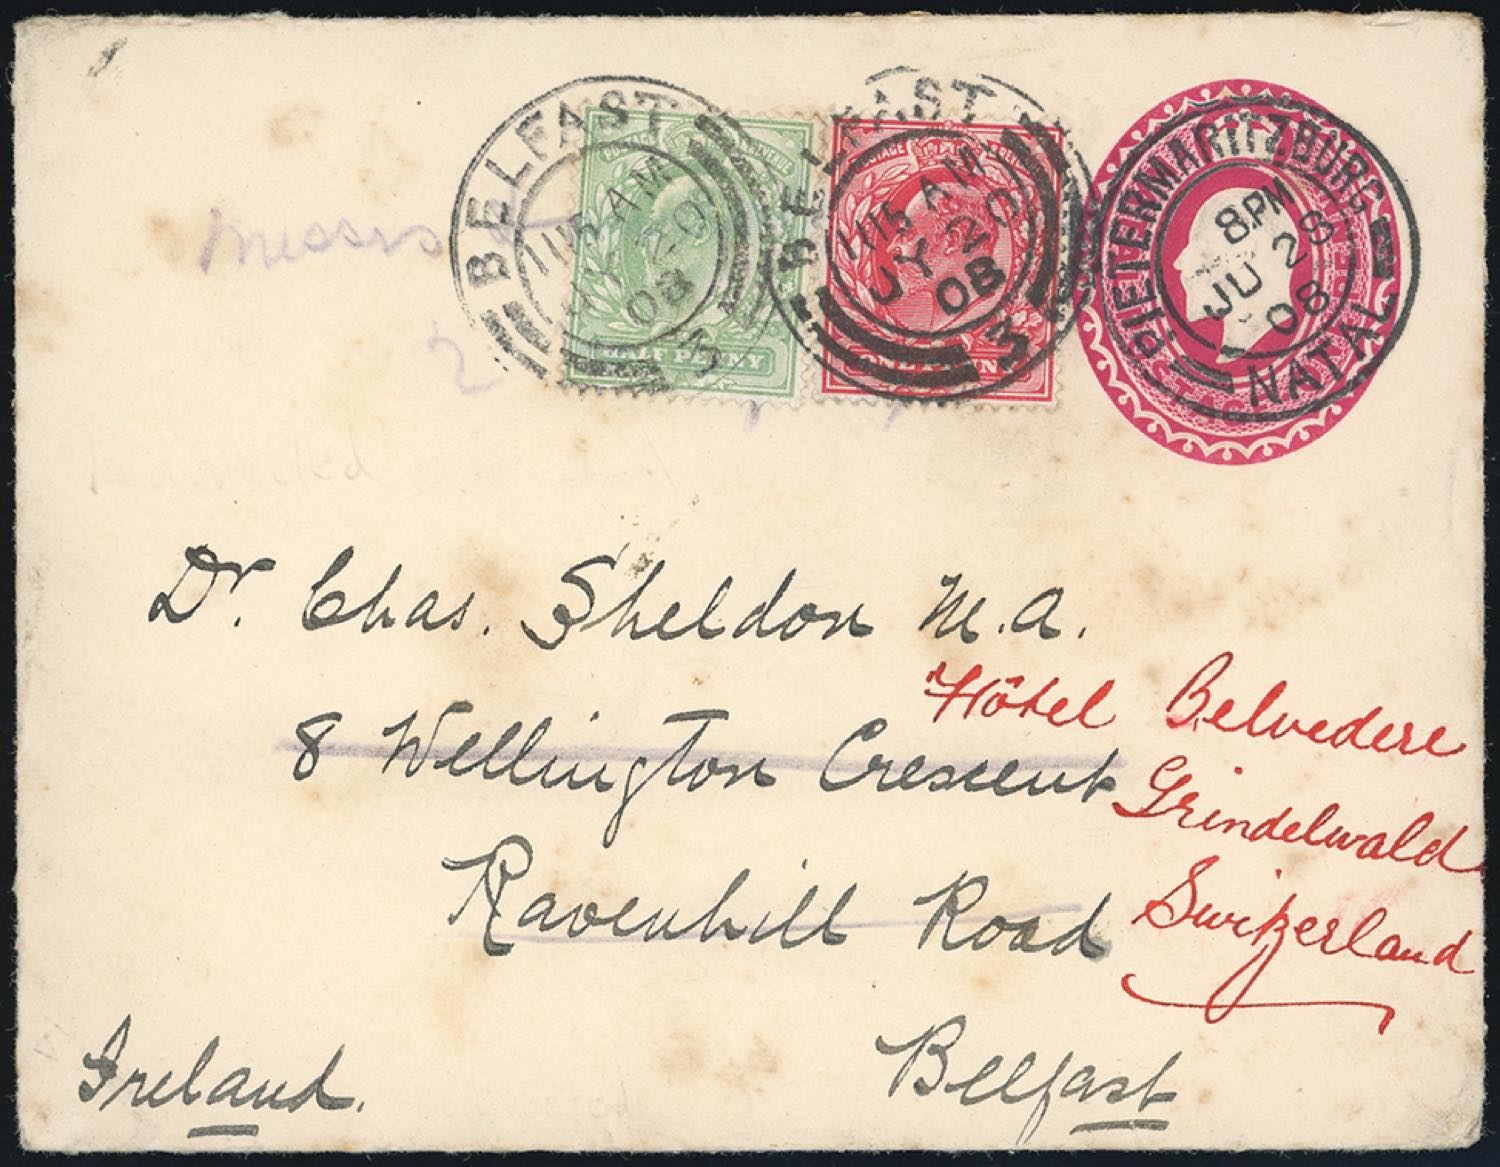 BELFAST
11 15 AM
JY 20
08
3
HALF PENNY
BELFAST
11 15 AM
JY 20
08
3
POSTAGE
ONE PENNY
PIETERMARITZBURG
8 PM
JU 28
08
NATAL
Messrs
2
Dr. Chas. Sheldon M.A.
8 Wellington Crescent
Ravenhill Road
Belfast
Ireland.
Hôtel Belvedere
Grindelwald
Switzerland